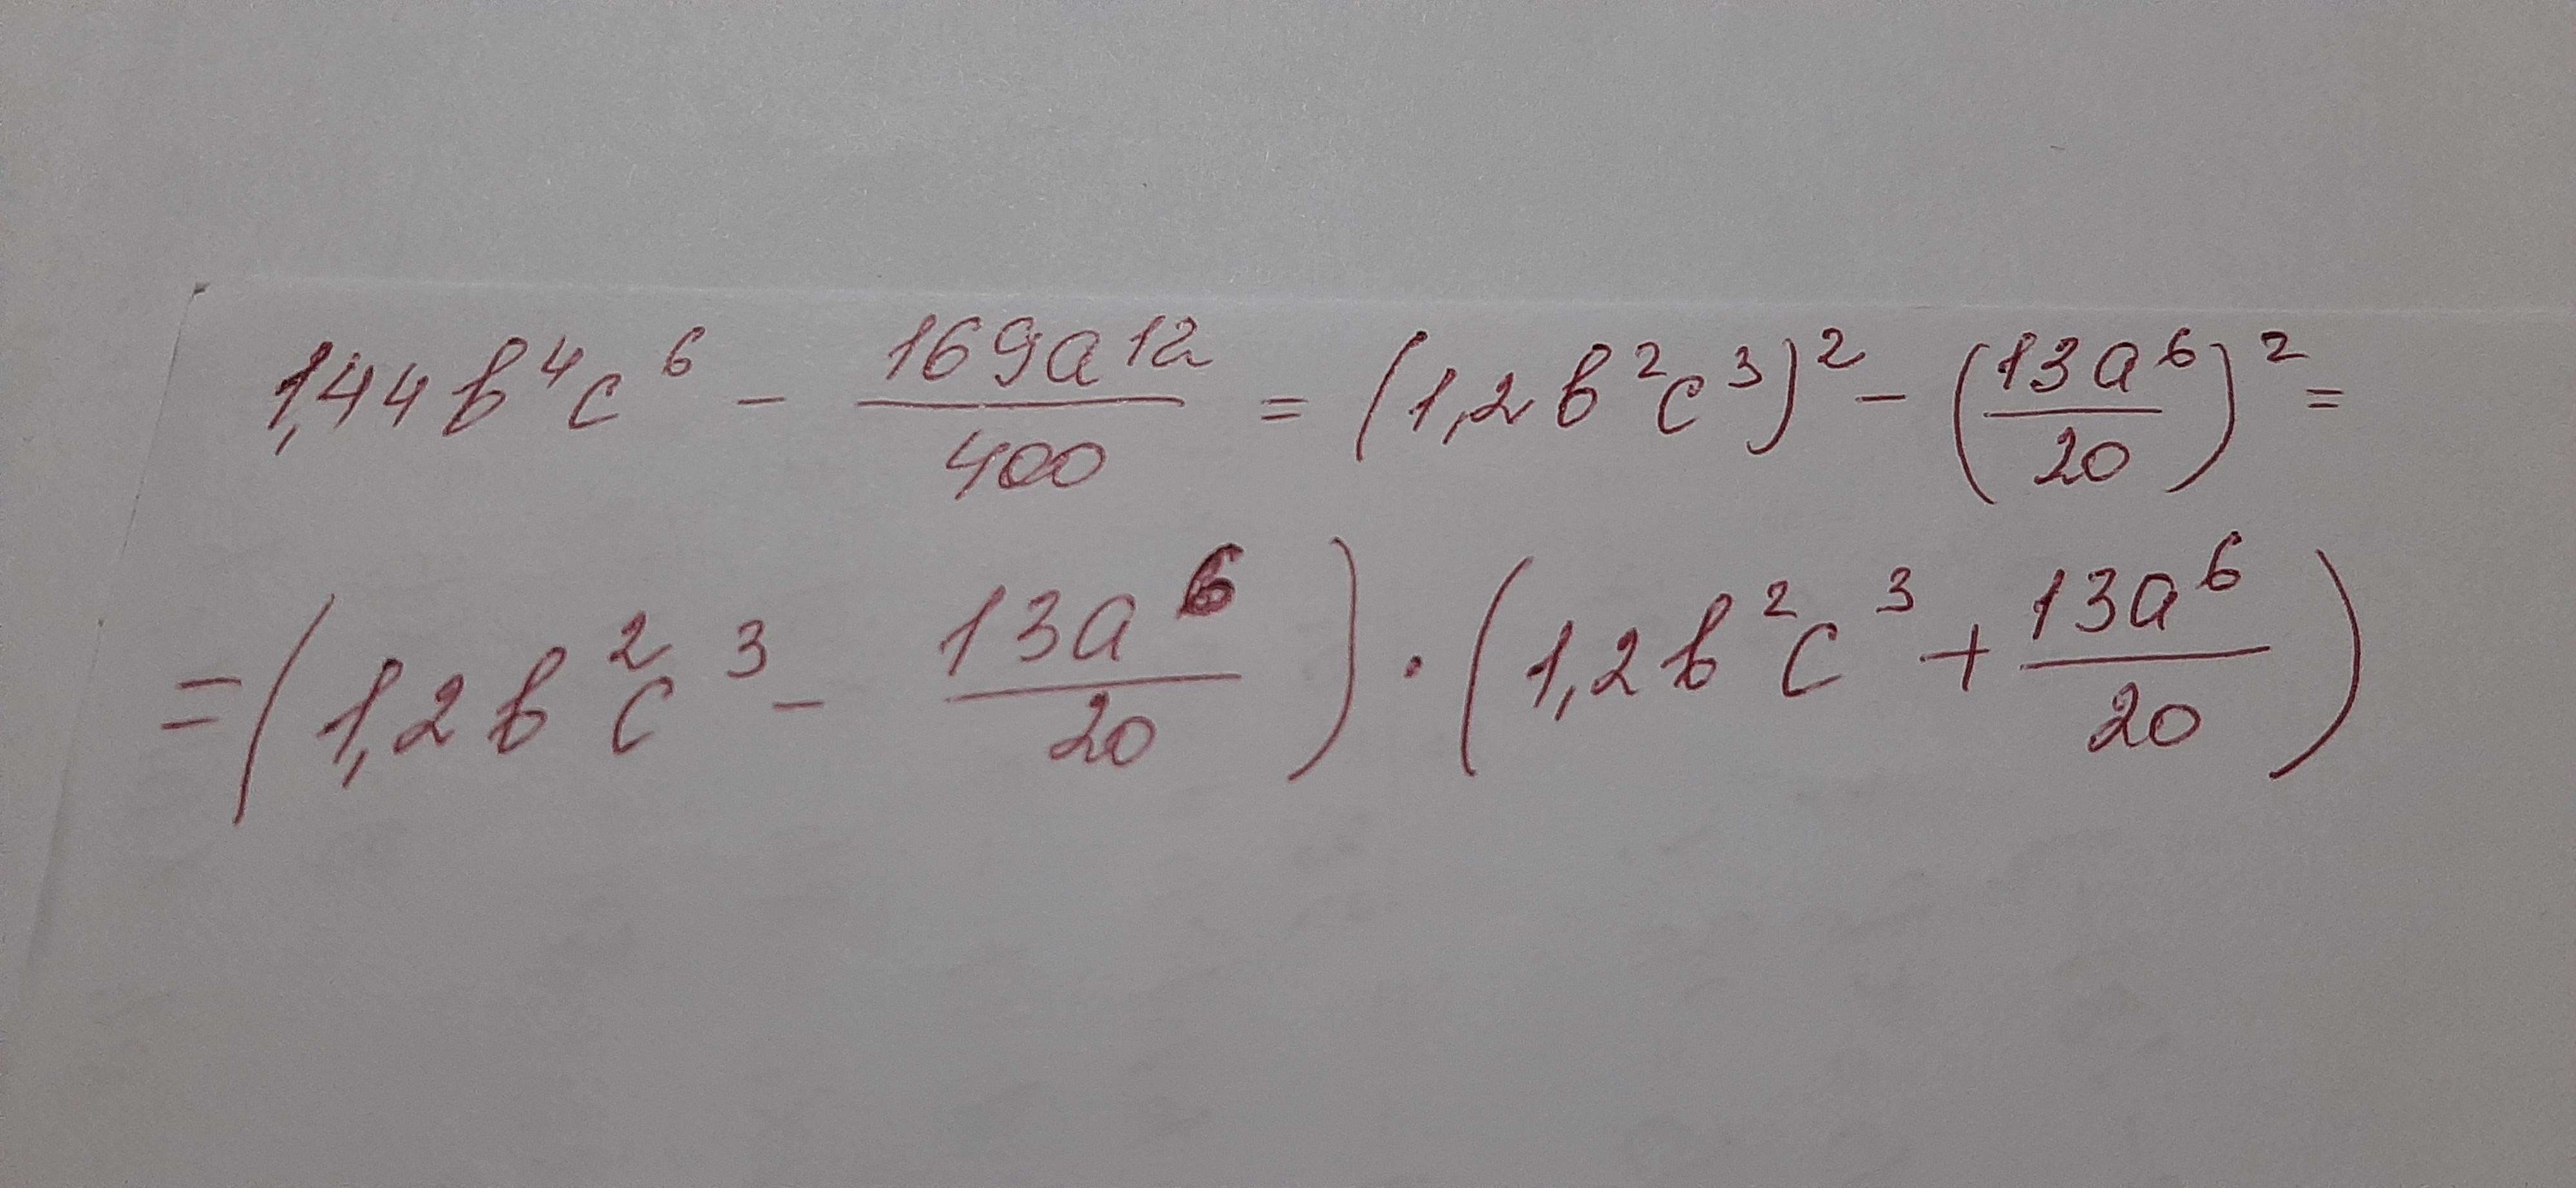 1,44b⁴c⁶ - 169a¹²/400 = (1,2b²c³)² - (13a⁶/20)² =
= (1,2b²c³ - 13a⁶/20) · (1,2b²c³ + 13a⁶/20)